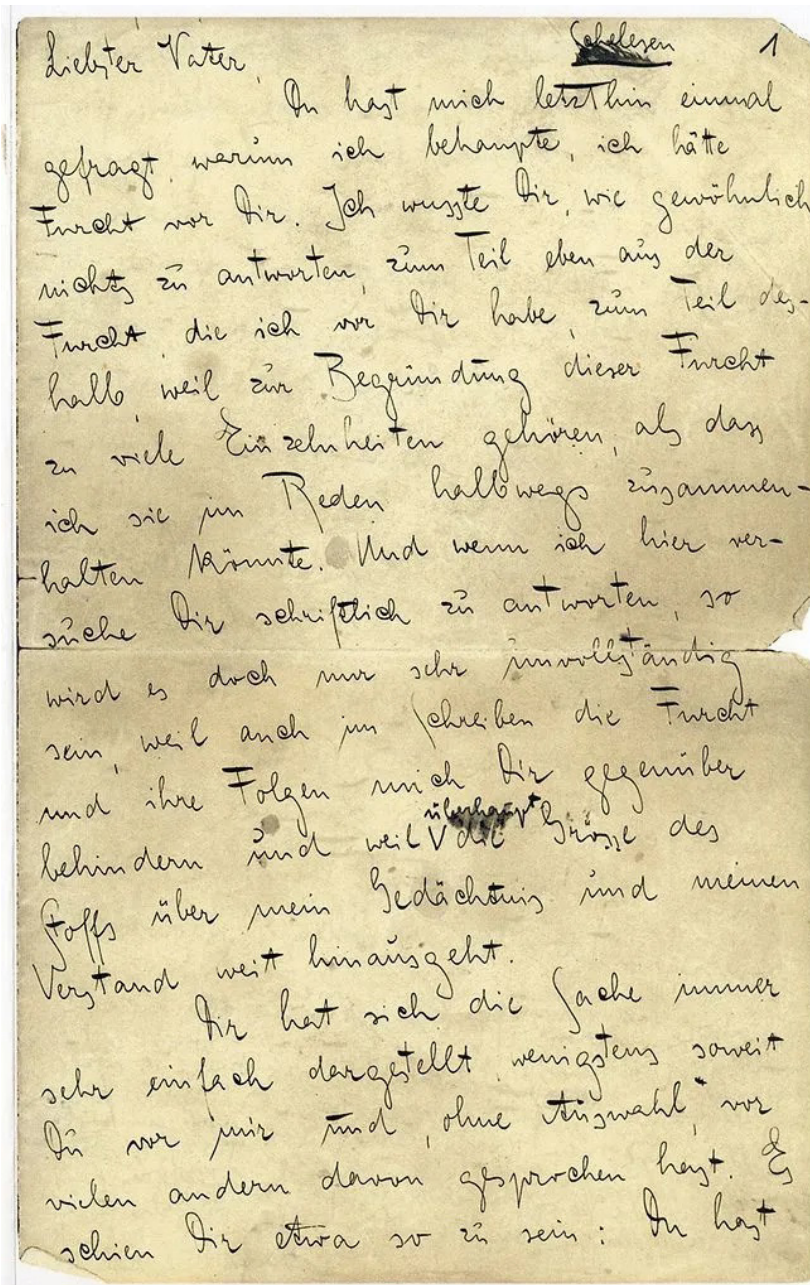 Schelesen
1
Liebster Vater,
Du hast mich letzthin einmal
gefragt, warum ich behaupte, ich hätte
Furcht vor Dir. Ich wusste Dir, wie gewöhnlich
nichts zu antworten, zum Teil eben aus der
Furcht, die ich vor Dir habe, zum Teil des-
halb, weil zur Begründung dieser Furcht
zu viele Einzelnheiten gehören, als dass
ich sie im Reden halbwegs zusammen-
halten könnte. Und wenn ich hier ver-
suche Dir schriftlich zu antworten, so
wird es doch nur sehr unvollständig
sein, weil auch im Schreiben die Furcht
und ihre Folgen mich Dir gegenüber
überhaupt
behindern und weil V die Grösse des
Stoffs über mein Gedächtnis und meinen
Verstand weit hinausgeht.
Dir hat sich die Sache immer
sehr einfach dargestellt, wenigstens soweit
Du vor mir und, ohne Auswahl, vor
vielen andern davon gesprochen hast. Es
schien Dir etwa so zu sein: Du hast